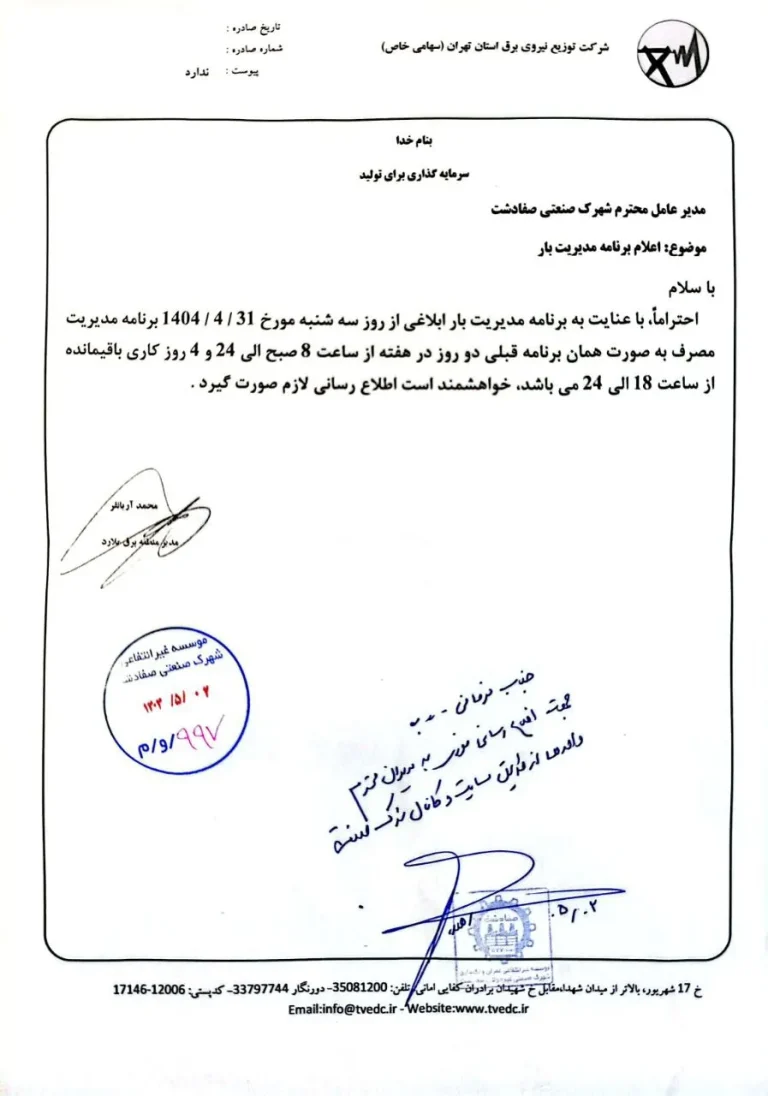 شرکت توزیع نیروی برق استان تهران (سهامی خاص)
تاریخ صادره :
شماره صادره :
پیوست : ندارد
بنام خدا
سرمایه گذاری برای تولید
مدیر عامل محترم شهرک صنعتی صفادشت
موضوع: اعلام برنامه مدیریت بار
با سلام
احتراماً، با عنایت به برنامه مدیریت بار ابلاغی از روز سه شنبه مورخ 31 / 4 / 1404 برنامه مدیریت
مصرف به صورت همان برنامه قبلی دو روز در هفته از ساعت 8 صبح الی 24 و 4 روز کاری باقیمانده
از ساعت 18 الی 24 می باشد، خواهشمند است اطلاع رسانی لازم صورت گیرد .
محمد آریانفر
مدیر منطقه برق ملارد
موسسه غیر انتفاعی
شهرک صنعتی صفادشت
۹۹۷/و/م
جناب
جهت رسانی به مدیران محترم
واحدها از طریق سایت و کانال شهرک
۰۵/۰۲
صفادشت
خ 17 شهریور، بالاتر از میدان شهدا،مقابل خ شهیدان برادران کفایی امانی، تلفن: 35081200– دورنگار 33797744– کدپستی: 12006-17146
Email:info@tvedc.ir - Website:www.tvedc.ir